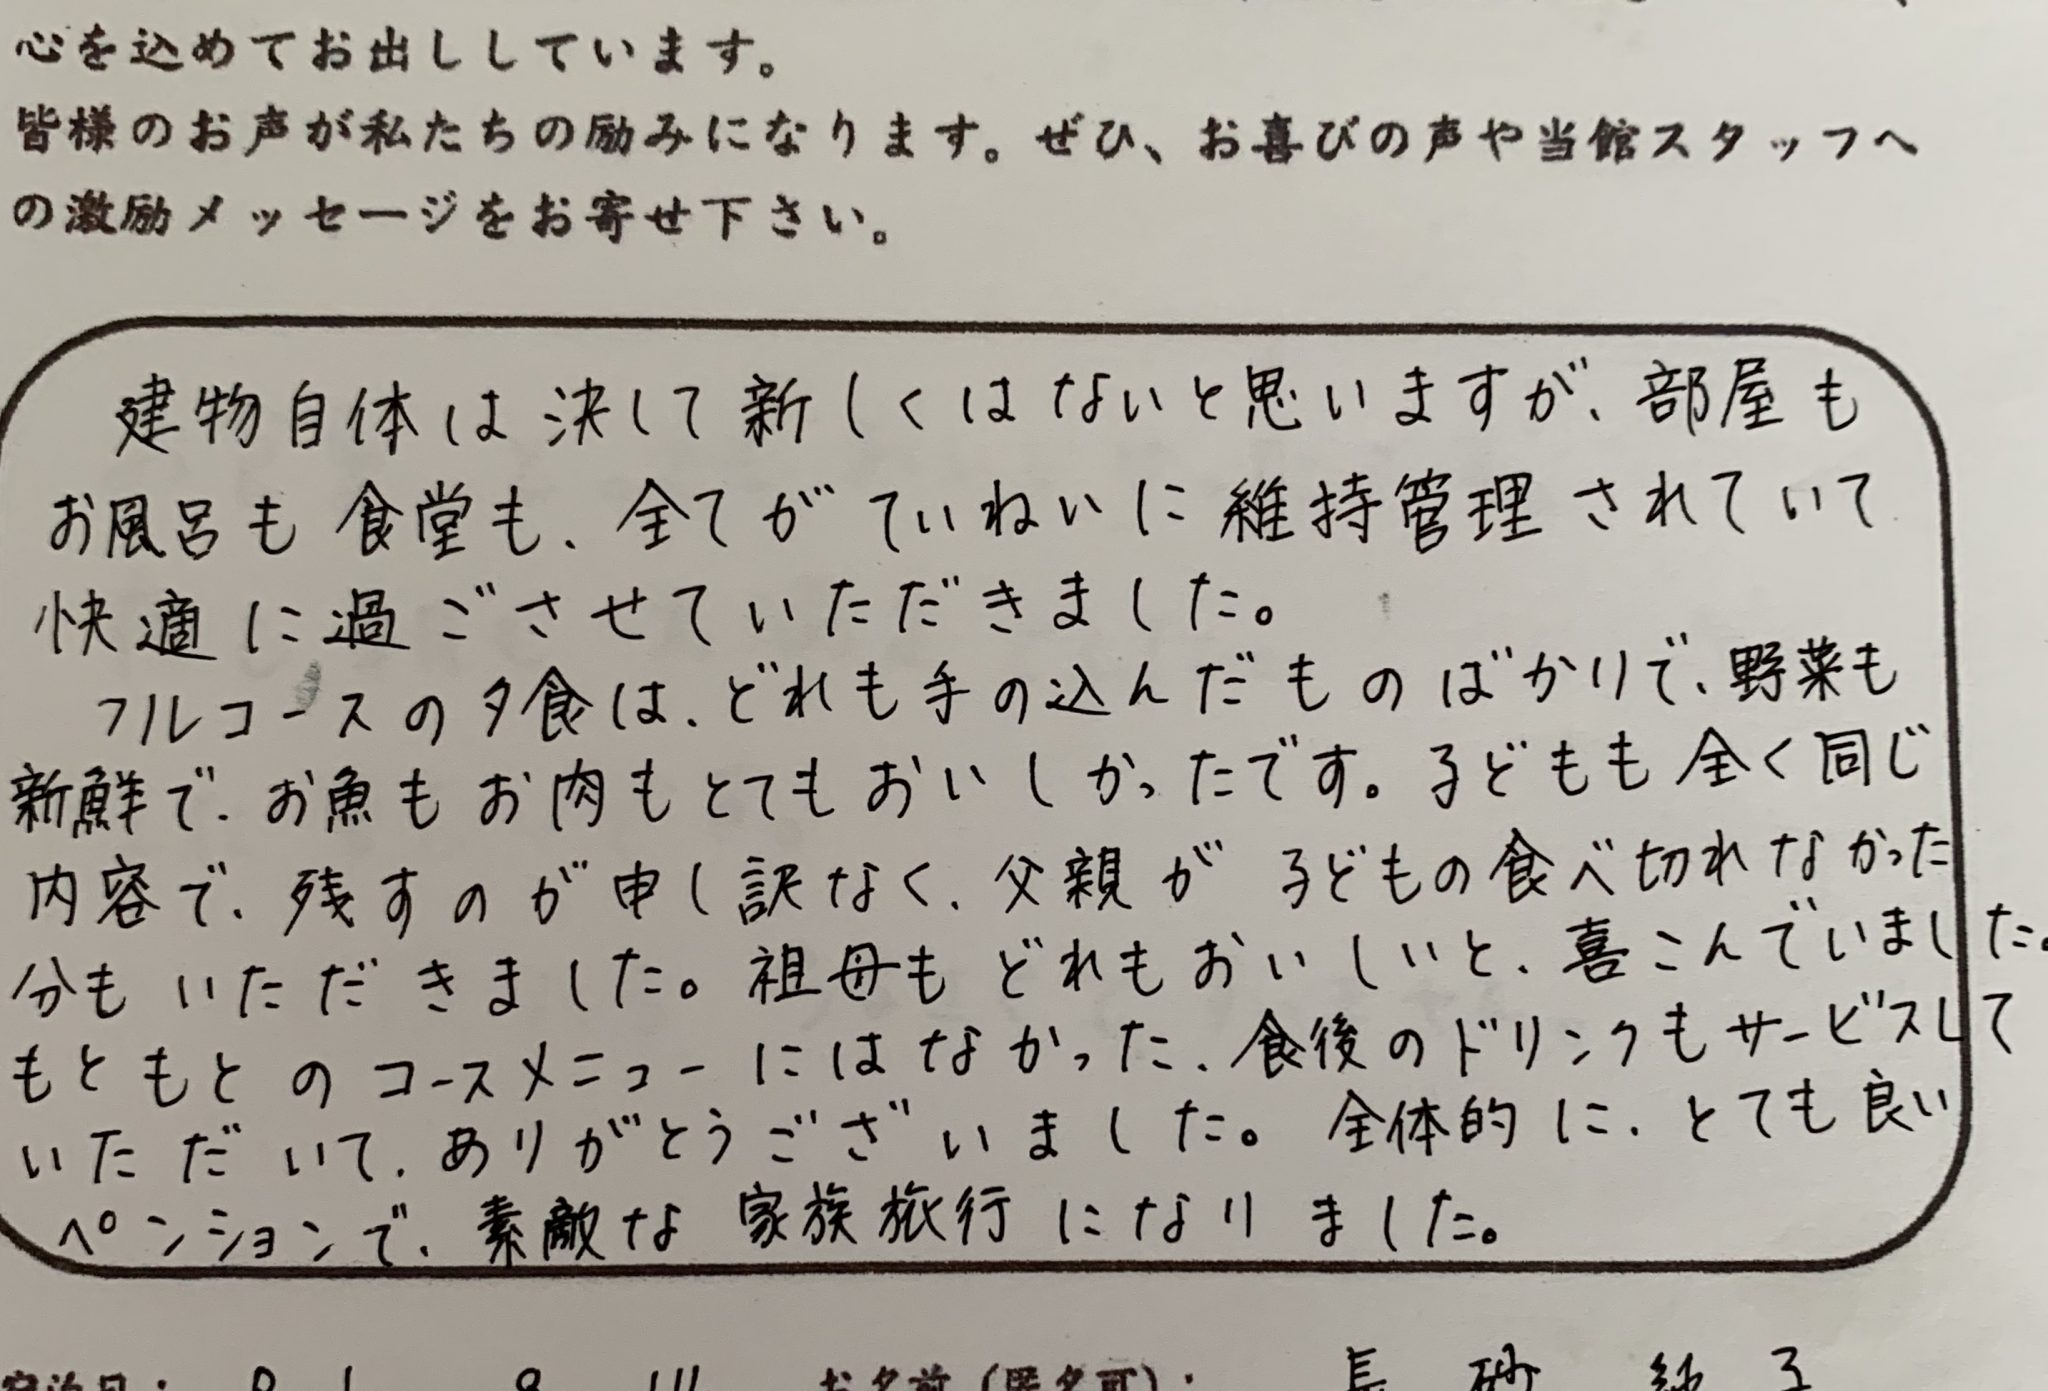 心を込めてお出ししています。
皆様のお声が私たちの励みになります。ぜひ、お喜びの声や当館スタッフへ
の激励メッセージをお寄せ下さい。
建物自体は決して新しくはないと思いますが、部屋も
お風呂も食堂も、全てがていねいに維持管理されていて
快適に過ごさせていただきました。
フルコースの夕食は、どれも手の込んだものばかりで、野菜も
新鮮で、お魚もお肉もとてもおいしかったです。子どもも全く同じ
内容で、残すのが申し訳なく、父親が子どもの食べ切れなかった
分もいただきました。祖母もどれもおいしいと、喜こんでいました。
もともとのコースメニューにはなかった、食後のドリンクもサービスして
いただいて、ありがとうございました。全体的に、とても良い
ペンションで、素敵な家族旅行になりました。
お名前(匿名可):